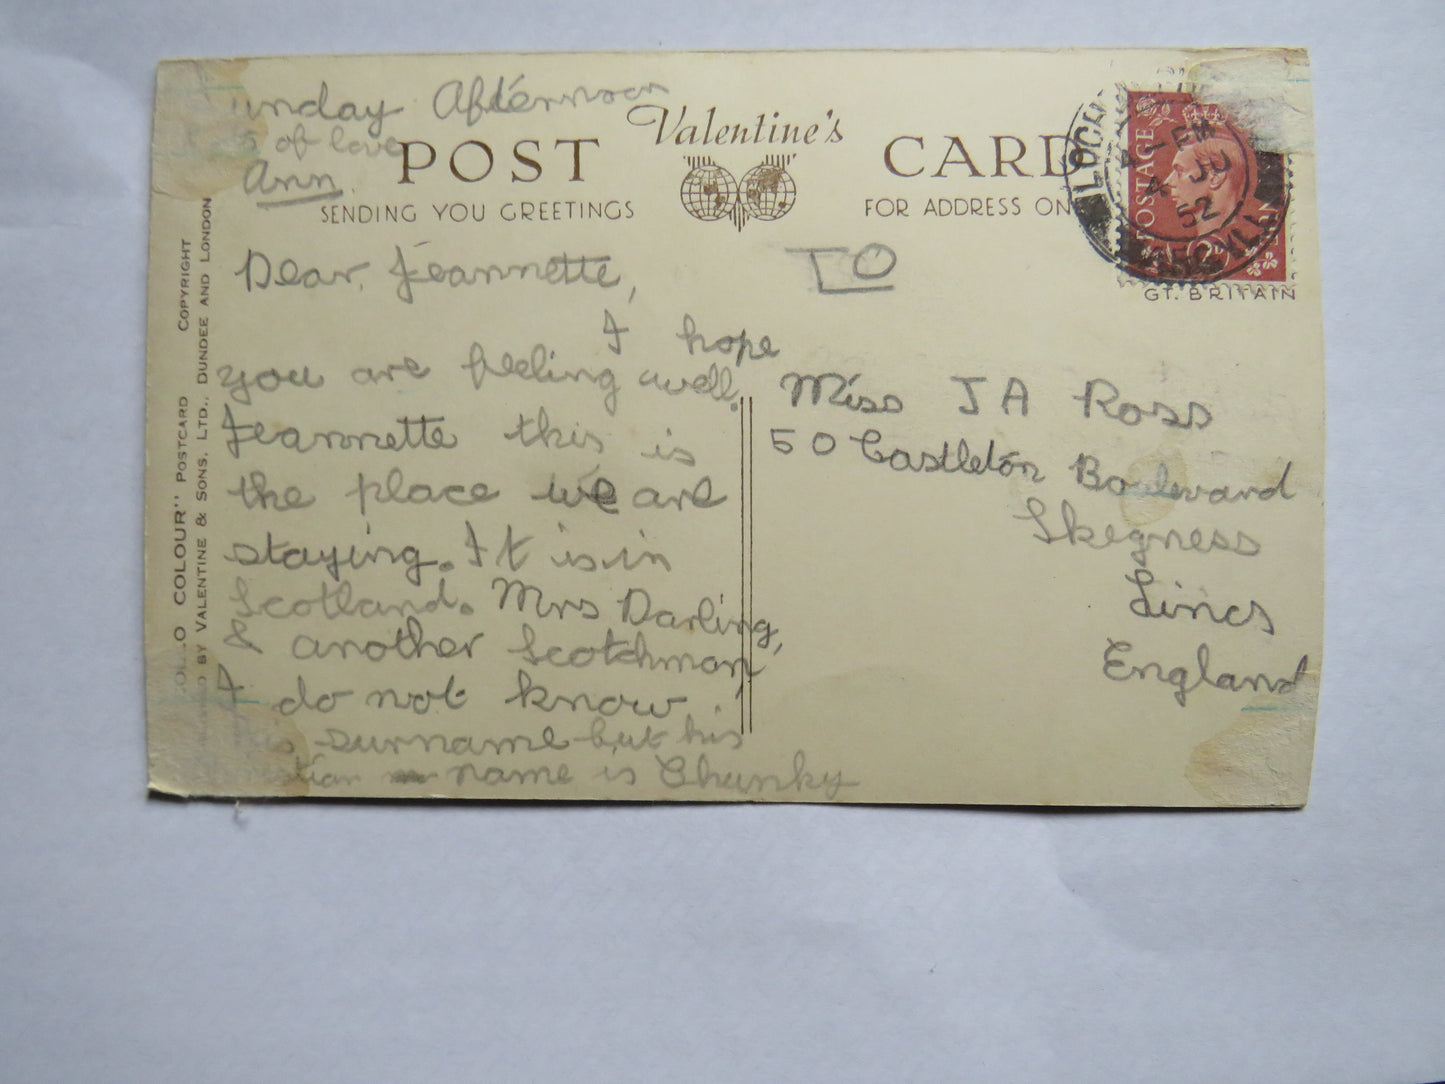 unday Afternoon
s of love
Ann.
Valentine's
POST CARD
SENDING YOU GREETINGS
FOR ADDRESS ON
GT. BRITAIN
POSTAGE
4 JU
52
COLOUR" POSTCARD COPYRIGHT
BY VALENTINE & SONS, LTD., DUNDEE AND LONDON
Dear, Jeannette,
I hope
you are feeling well.
Jeannette this is
the place we are
staying. It is in
Scotland. Mrs Darling,
& another Scotchman,
I do not know
is surname but his
tian name is Chunky
TO
Miss J A Ross
50 Castleton Boulevard
Skegness
Lincs
England